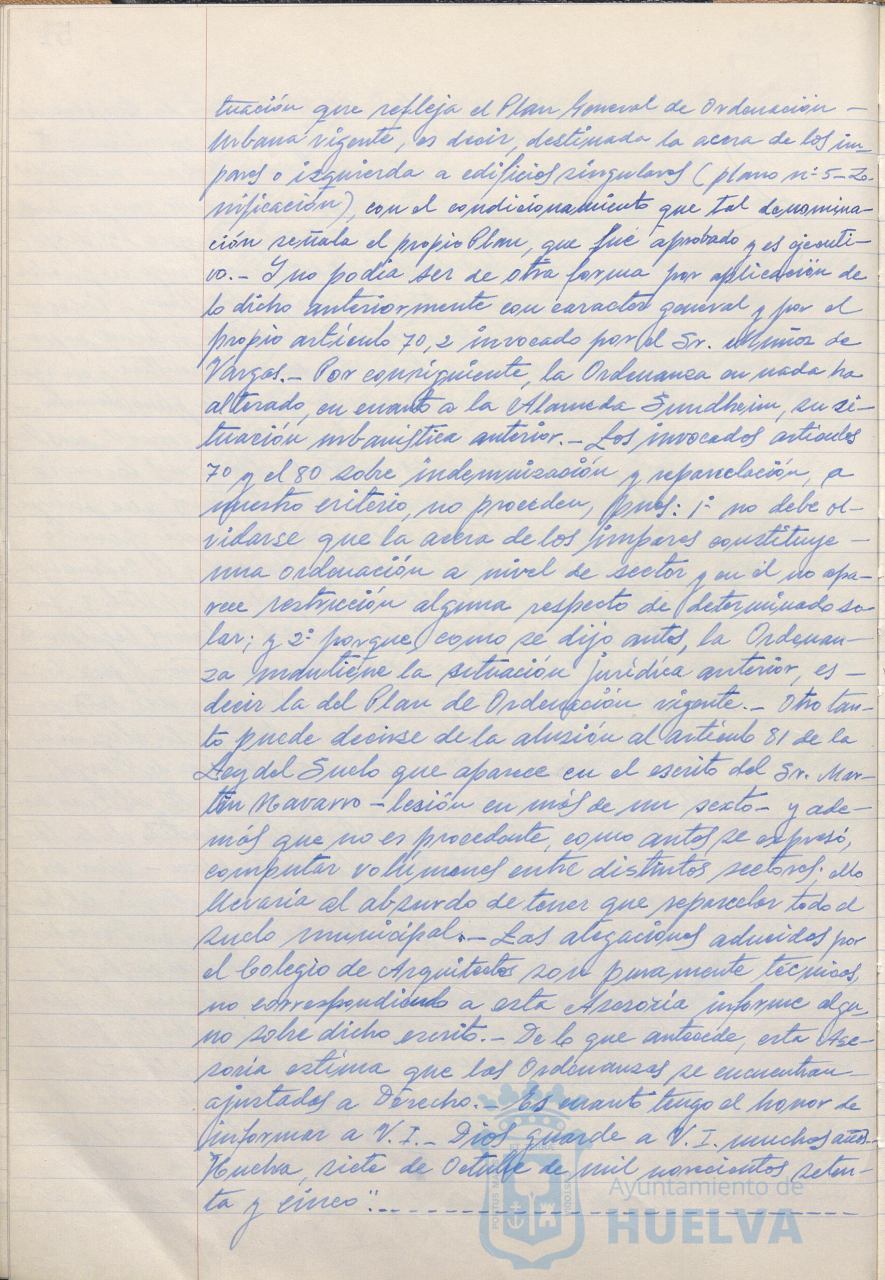 tuación que refleja el Plan General de Ordenación —
Urbana vigente, es decir, destinada la acera de los im-
pares o izquierda a edificios singulares (plano nº 5-Zo-
nificación), con el condicionamiento que tal denomina-
ción señala el propio Plan, que fué aprobado y es ejecuti-
vo.- Y no podía ser de otra forma por aplicación de
lo dicho anteriormente con caracter general y por el
propio artículo 70,2 invocado por el Sr. Muñoz de
Vargas.- Por consiguiente, la Ordenanza en nada ha
alterado, en cuanto a la Alameda Sundheim, su si-
tuación urbanística anterior.- Los invocados articulos
70 y el 80 sobre indemnización y reparcelación, a
nuestro criterio, no proceden, pues: 1º no debe ol-
vidarse que la acera de los impares constituye —
una ordenación a nivel de sector y en él no apa-
rece restricción alguna respecto de determinado so-
lar; y 2º porque, como se dijo antes, la Ordenan-
za mantiene la situación jurídica anterior, es —
decir la del Plan de Ordenación vigente.- Otro tan-
to puede decirse de la alusión al artículo 81 de la
Ley del Suelo que aparece en el escrito del Sr. Mar-
tín Navarro - lesión en más de un sexto - y ade-
más que no es procedente, como antes se expresó,
computar volúmenes entre distintos sectores; ello
llevaría al absurdo de tener que reparcelar todo el
suelo municipal.- Las alegaciones aducidas por
el Colegio de Arquitectos son puramente técnicas,
no correspondiendo a esta Asesoría informe algu-
no sobre dicho escrito.- De lo que antecede, esta Ase-
soría estima que las Ordenanzas se encuentran —
ajustadas a Derecho.- Es cuanto tengo el honor de
informar a V. I.- Dios guarde a V. I. muchos años.-
Huelva, siete de Octubre de mil novecientos seten-
ta y cinco".
PORTUS MA
Ayuntamiento de
HUELVA